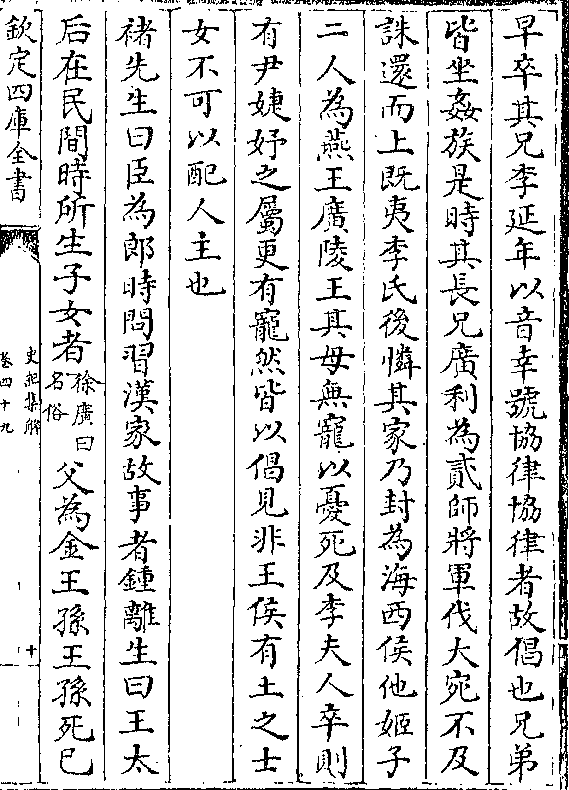 早卒其兄李延年以音幸號協律協律者故倡也兄弟
皆坐姦族是時其長兄廣利為貳師將軍伐大宛不及
誅還而上既夷李氏後憐其家乃封為海西侯他姬子
二人為燕王廣陵王其母無寵以憂死及李夫人卒則
有尹婕妤之屬更有寵然皆以倡見非王侯有土之士
女不可以配人主也
褚先生曰臣為郎時問習漢家故事者鍾離生曰王太
后在民間時所生子女者徐廣曰名俗父為金王孫王孫死已
欽定四庫全書
史記集解
卷四十九
十